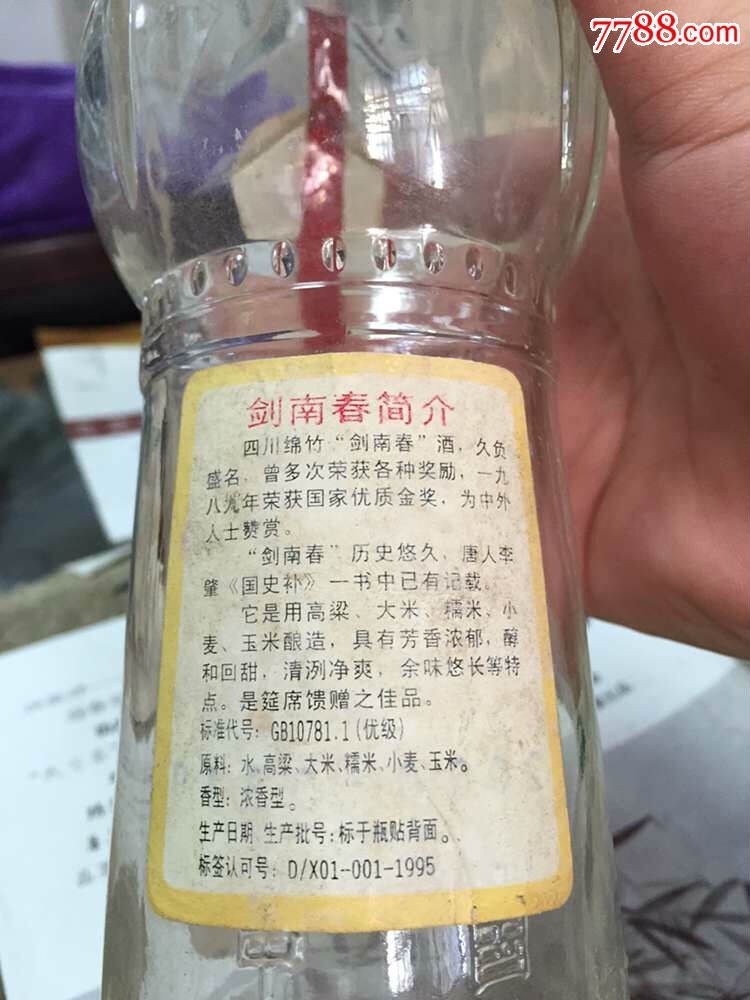 7788.com
剑南春简介
四川绵竹“剑南春”酒，久负
盛名，曾多次荣获各种奖励，一九
八九年荣获国家优质金奖，为中外
人士赞赏。
“剑南春”历史悠久、唐人李
肇《国史补》一书中已有记载。
它是用高粱、大米、糯米、小
麦、玉米酿造，具有芳香浓郁，醇
和回甜，清洌净爽，余味悠长等特
点。是筵席馈赠之佳品。
标准代号：GB10781.1(优级)
原料：水、高粱、大米、糯米、小麦、玉米。
香型：浓香型。
生产日期 生产批号：标于瓶贴背面。
标签认可号：D/X01--001-1995